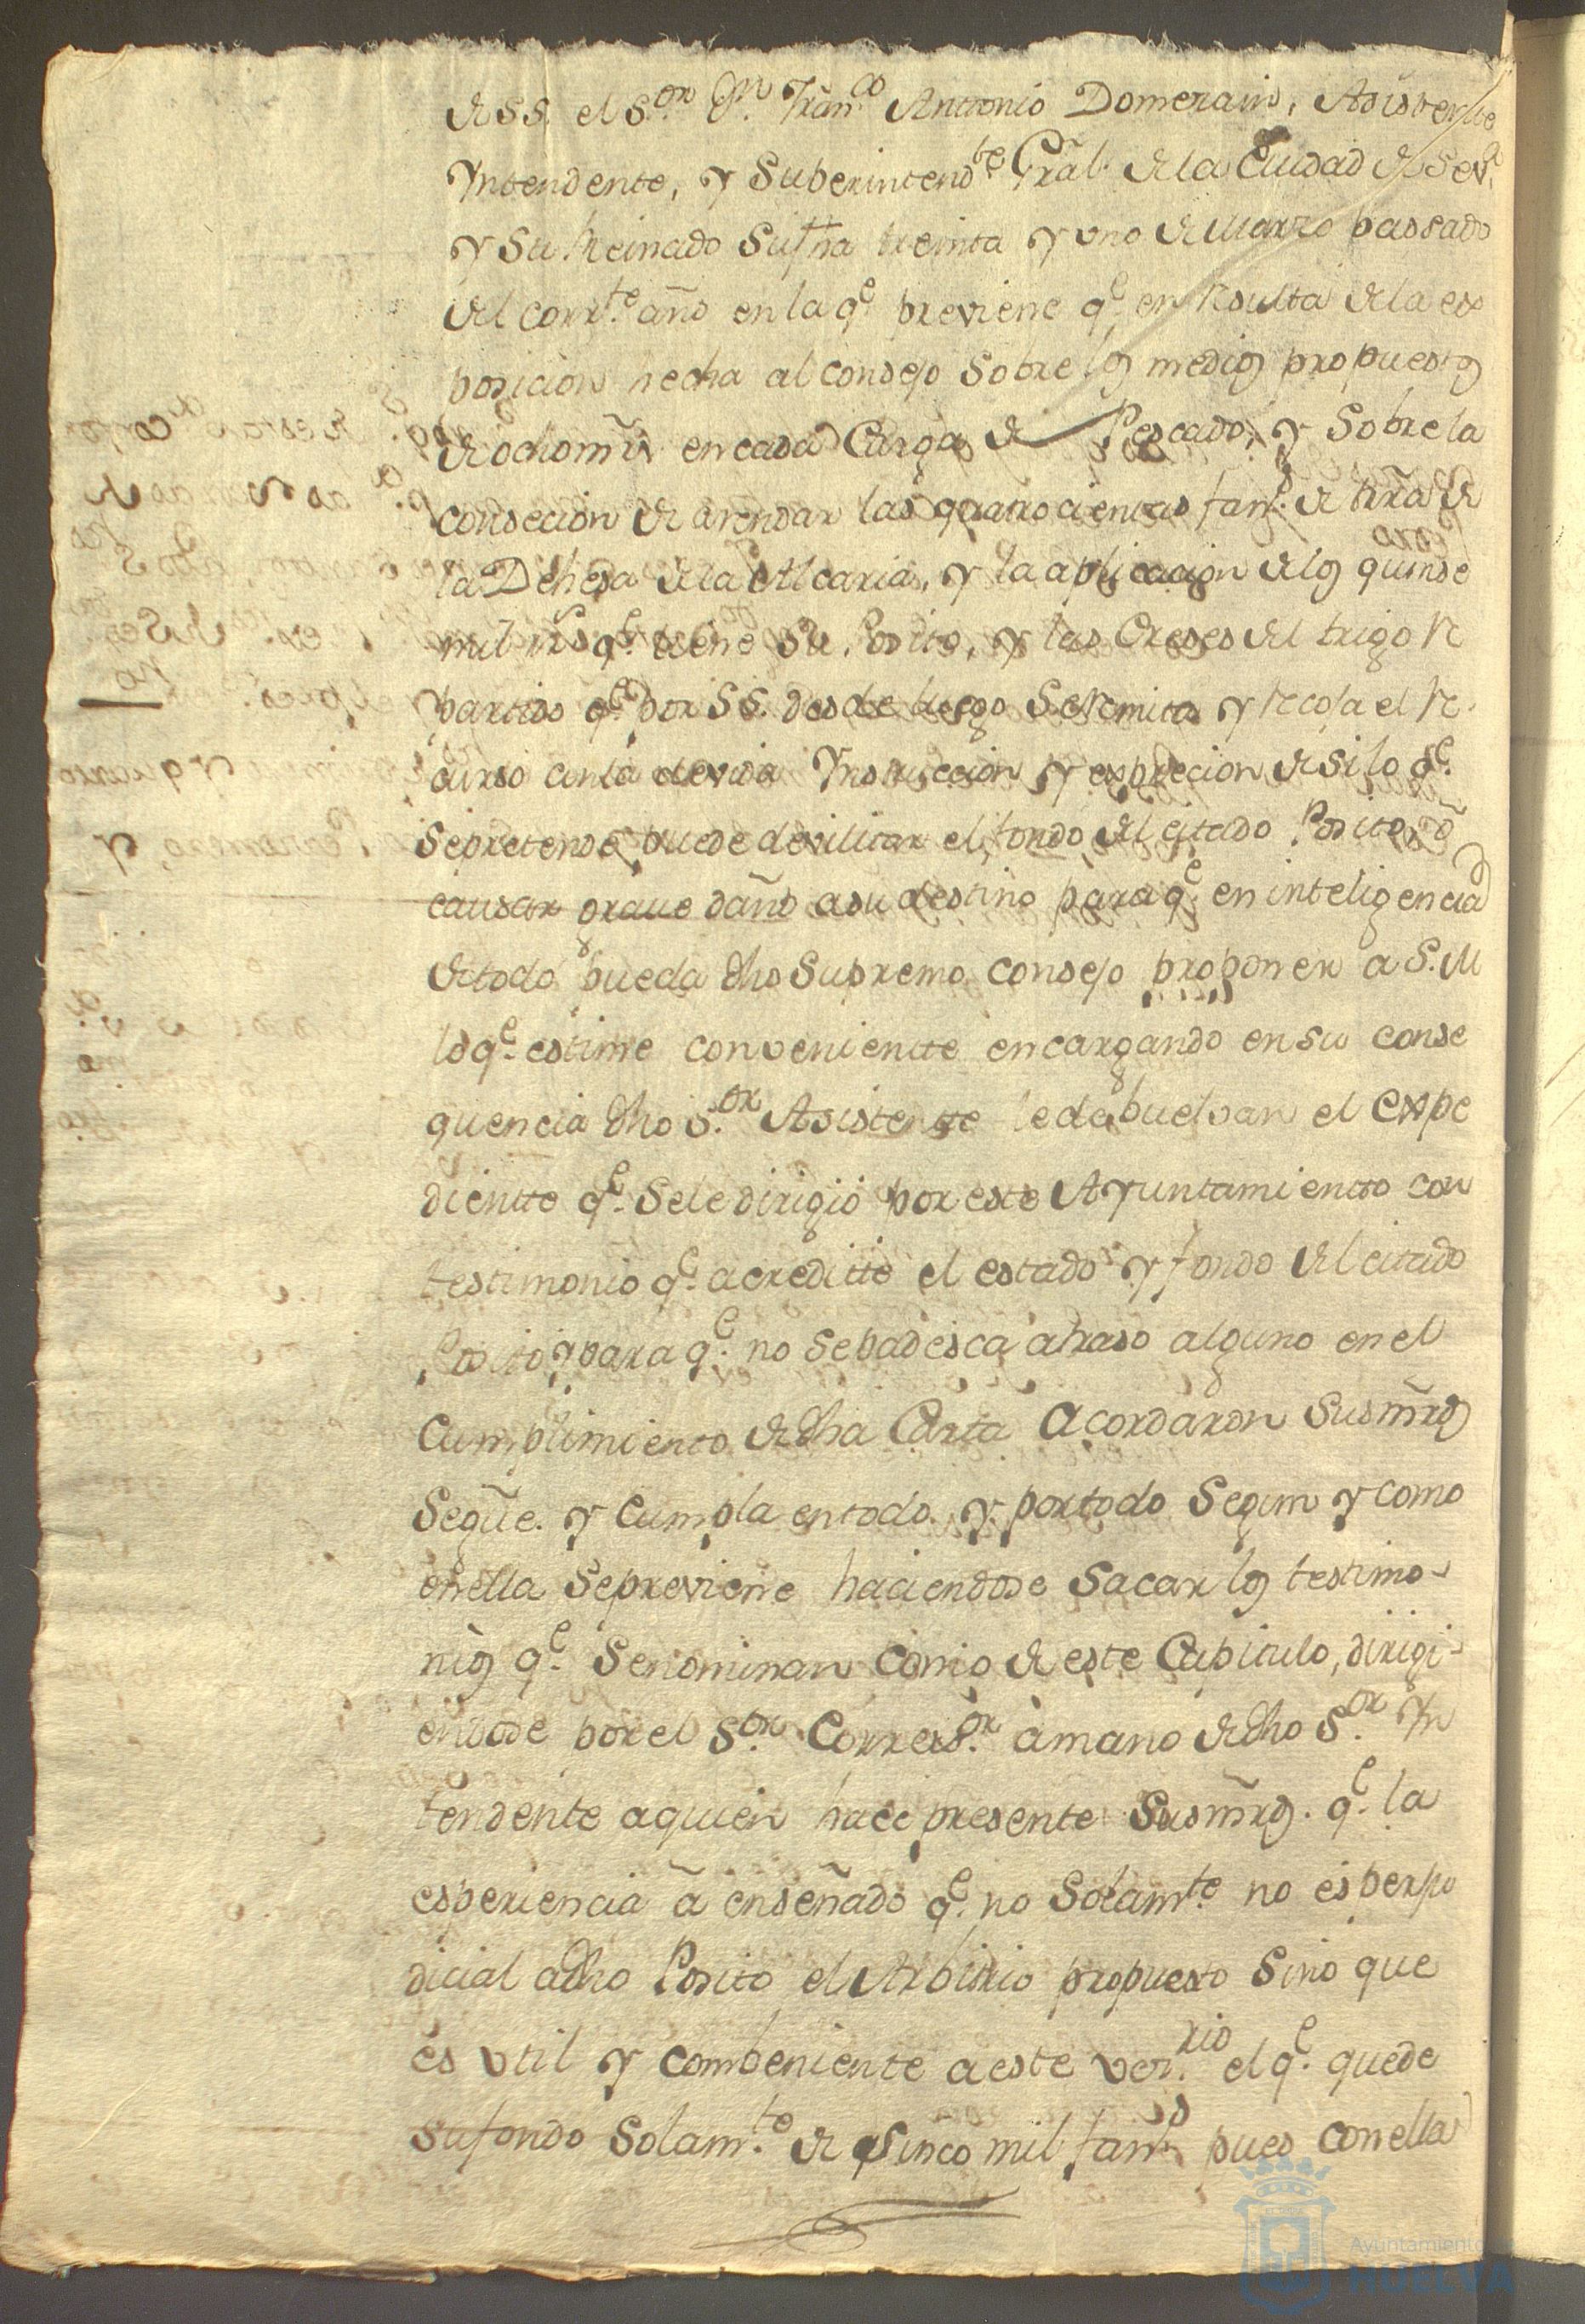 de SS. el S.or D.n Fran.co Antonio Domezain, Asistente
Yntendente, y Superintend.te Gral. de la Ciudad de Sev.a
y su Reinado su fha treinta y uno de Marzo passado
del corr.te año en la q.e previene q.e en Resulta de la ex
posicion hecha al consejo sobre los medios propuestos
de ocho mrs. en cada Carga de Pescado, y sobre la
consecion de arrendar las quatrocientas fan.s de tierra de
la Dehesa de la Alcaria, y la aplicacion de los quinse
mil rrs q.e tiene su Posito, y las Creses del trigo Re
partido q.e por SS. desde luego se Remita y Recoja el Re
curso con la devida Ynstruccion y exprecion de si lo q.e
se pretende puede devilitar el fondo del citado Posito, ò
causar grave daño a su destino para q.e en inteligencia
de todo pueda dho Supremo consejo proponer a S. M
lo q.e estime conveniente encargando en su conse
quencia dho S.or Asistente le debuelvan el expe
diente q.e se le dirigió por este Ayuntamiento con
testimonio q.e acredite el estado y fondo del citado
Posito; y para q.e no se padesca atraso alguno en el
Cumplimiento de dha Carta Acordaron sus mrds
se gûe. y cumpla en todo. y por todo segun y como
en ella se previene haciendose sacar los testimo-
nios q.e se nominan como de este Capitulo, dirigi-
endose por el S.or Correx.or à mano de dho S.or Yn
tendente a quien hace presente sus mrds. q.e la
esperiencia ã enseñado q.e no solam.te no es perju
dicial a dho Posito el Arbitrio propuesto sino que
es util y combeniente a este vez.rio el q.e quede
su fondo solam.te de Sinco mil fan.s pues con ella
Ayuntamiento
HUELVA